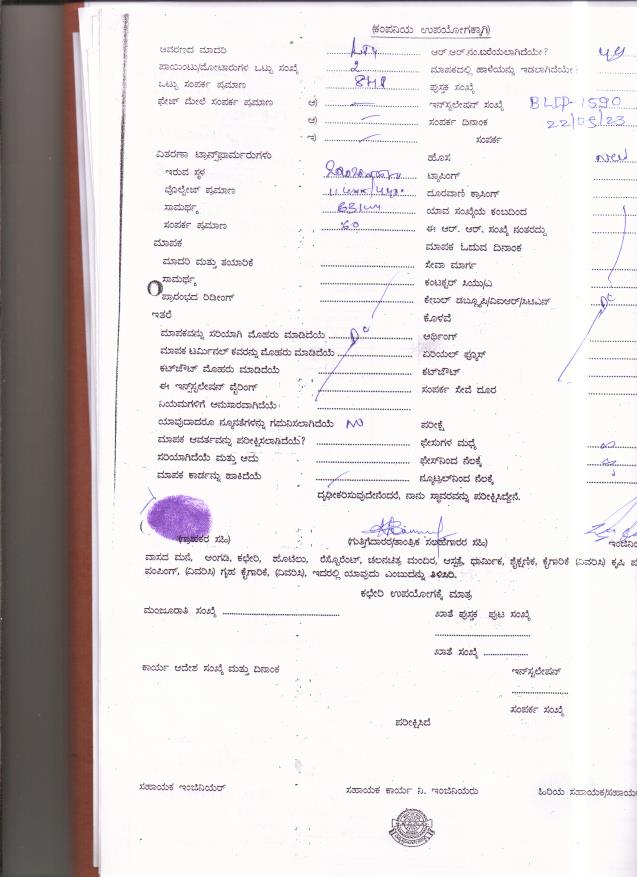 (ಕಂಪನಿಯ ಉಪಯೋಗಕ್ಕಾಗಿ)
ಆವರಣದ ಮಾದರಿ ಆರ್.ಆರ್.ನಂ.ಬರೆಯಲಾಗಿದೆಯೇ?
ಪಾಯಿಂಟು/ಮೋಟಾರುಗಳ ಒಟ್ಟು ಸಂಖ್ಯೆ 2 ಮಾಪಕದಲ್ಲಿ ಹಾಳೆಯನ್ನು ಇಡಲಾಗಿದೆಯೇ?
ಒಟ್ಟು ಸಂಪರ್ಕ ಪ್ರಮಾಣ 8HP ಪುಸ್ತಕ ಸಂಖ್ಯೆ
ಫೇಜ್ ಮೇಲೆ ಸಂಪರ್ಕ ಪ್ರಮಾಣ ಅ) ಇನ್‌ಸ್ಟಲೇಷನ್ ಸಂಖ್ಯೆ BLIP-1590
ಆ) ಸಂಪರ್ಕ ದಿನಾಂಕ 22/05/23
ಇ) ಸಂಪರ್ಕ
ವಿತರಣಾ ಟ್ರಾನ್ಸ್‌ಫಾರ್ಮರುಗಳು ಹೊಸ New
ಇರುವ ಸ್ಥಳ ಟ್ಯಾಪಿಂಗ್
ವೋಲ್ಟೇಜ್ ಪ್ರಮಾಣ ದೂರವಾಣಿ ಕ್ರಾಸಿಂಗ್
ಸಾಮರ್ಥ್ಯ ಯಾವ ಸಂಖ್ಯೆಯ ಕಂಬದಿಂದ
ಸಂಪರ್ಕ ಪ್ರಮಾಣ 60 ಈ ಆರ್. ಆರ್. ಸಂಖ್ಯೆ ನಂತರದ್ದು
ಮಾಪಕ ಮಾಪಕ ಓದುವ ದಿನಾಂಕ
ಮಾದರಿ ಮತ್ತು ತಯಾರಿಕೆ ಸೇವಾ ಮಾರ್ಗ
ಸಾಮರ್ಥ್ಯ ಕಂಡಕ್ಟರ್ ಸಿಯು/ಎ
ಪ್ರಾರಂಭದ ರಿಡೀಂಗ್ ಕೇಬಲ್ ಡಬ್ಲ್ಯೂಪಿ/ವಿಐಆರ್/ಸಿಟಿಎನ್
ಇತರೆ ಕೊಳವೆ
ಮಾಪಕವನ್ನು ಸರಿಯಾಗಿ ಮೊಹರು ಮಾಡಿದೆಯೆ ಅರ್ಥಿಂಗ್
ಮಾಪಕ ಟರ್ಮಿನಲ್ ಕವರನ್ನು ಮೊಹರು ಮಾಡಿದೆಯೆ ಏರಿಯಲ್ ಫ್ಯೂಸ್
ಕಟ್‌ಔಟ್ ಮೊಹರು ಮಾಡಿದೆಯೆ ಕಟ್‌ಔಟ್
ಈ ಇನ್ಸ್‌ಟಲೇಷನ್ ವೈರಿಂಗ್ ಸಂಪರ್ಕ ಸೇವೆ ದೂರ
ನಿಯಮಗಳಿಗೆ ಅನುಸಾರವಾಗಿದೆಯೆ
ಯಾವುದಾದರೂ ನ್ಯೂನತೆಗಳನ್ನು ಗಮನಿಸಲಾಗಿದೆಯೆ NO ಪರೀಕ್ಷೆ
ಮಾಪಕ ಆವರ್ತವನ್ನು ಪರೀಕ್ಷಿಸಲಾಗಿದೆಯೆ? ಫೇಸುಗಳ ಮಧ್ಯೆ
ಸರಿಯಾಗಿದೆಯೆ ಮತ್ತು ಅದು ಫೇಸ್‌ನಿಂದ ನೆಲಕ್ಕೆ
ಮಾಪಕ ಕಾರ್ಡನ್ನು ಹಾಕಿದೆಯೆ ನ್ಯೂಟ್ರಲ್‌ನಿಂದ ನೆಲಕ್ಕೆ
ದೃಢೀಕರಿಸುವುದೇನೆಂದರೆ, ನಾನು ಸ್ಥಾವರವನ್ನು ಪರೀಕ್ಷಿಸಿದ್ದೇನೆ.
(ಗ್ರಾಹಕರ ಸಹಿ) (ಗುತ್ತಿಗೆದಾರರ/ತಾಂತ್ರಿಕ ಸಲಹೆಗಾರರ ಸಹಿ)
ವಾಸದ ಮನೆ, ಅಂಗಡಿ, ಕಛೇರಿ, ಹೊಟೆಲು, ರೆಸ್ಟೊರೆಂಟ್, ಚಲನಚಿತ್ರ ಮಂದಿರ, ಆಸ್ಪತ್ರೆ, ಧಾರ್ಮಿಕ, ಶೈಕ್ಷಣಿಕ, ಕೈಗಾರಿಕೆ (ವಿವರಿಸಿ) ಕೃಷಿ
ಪಂಪಿಂಗ್, (ವಿವರಿಸಿ) ಗೃಹ ಕೈಗಾರಿಕೆ, (ವಿವರಿಸಿ), ಇದರಲ್ಲಿ ಯಾವುದು ಎಂಬುದನ್ನು ತಿಳಿಸಿರಿ.
ಕಛೇರಿ ಉಪಯೋಗಕ್ಕೆ ಮಾತ್ರ
ಮಂಜೂರಾತಿ ಸಂಖ್ಯೆ ಖಾತೆ ಪುಸ್ತಕ ಪುಟ ಸಂಖ್ಯೆ
ಖಾತೆ ಸಂಖ್ಯೆ
ಕಾರ್ಯ ಆದೇಶ ಸಂಖ್ಯೆ ಮತ್ತು ದಿನಾಂಕ ಇನ್‌ಸ್ಟಲೇಷನ್
ಸಂಪರ್ಕ ಸಂಖ್ಯೆ
ಪರೀಕ್ಷಿಸಿದೆ
ಸಹಾಯಕ ಇಂಜಿನಿಯರ್ ಸಹಾಯಕ ಕಾರ್ಯ ನಿ. ಇಂಜಿನಿಯರು ಹಿರಿಯ ಸಹಾಯಕ/ಸಹಾಯಕ